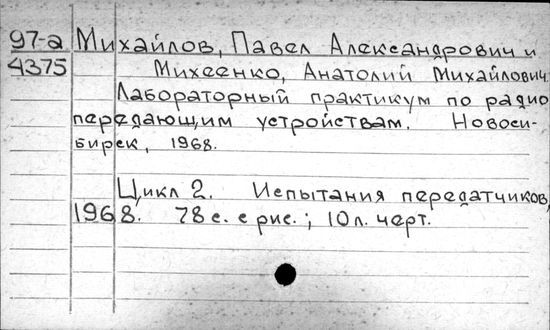 97-а Михайлов, Павел Александрович и
4375 Михеенко, Анатолий Михайлович.
Лабораторный практикум по радио
передающим устройствам. Новоси-
бирск, 1968.
Цикл 2. Испытания передатчиков,
1968. 78 с. с рис.; 10 л. черт.